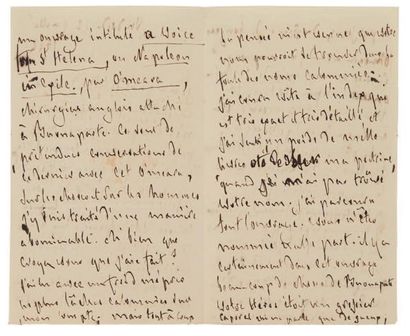 un ouvrage intitulé a Voice
from St Helena, ou Napoleon
in Exile, par O'meara,
chirurgien anglois attaché
à Buonaparte. Ce sont de
prétendues conversations de
ce dernier avec cet Omeara,
sur les choses et sur les hommes
j'y suis traité d'une manière
abominable. Eh bien que
croyez vous que j'aie fait?
j'ai lu avec un froid mépris
les plus lâches calomnies sur
mon compte. mais tout à coup
la pensée m'est venue que votre
nom pourroit se trouver dans la
foule des noms calomniés.
j'ai couru vite à l'index qui
est très exact et très détaillé et
j'ai senti un poids de mille
livres ôté de ma poitrine,
quand je n'ai pas trouvé
votre nom. j'ai parcouru
tout l'ouvrage. vous n'êtes
nommée nulle part. il y a
certainement dans cet ouvrage
beaucoup de choses de Buonaparte
votre héros étoit un grossier
caporal qui ne parle que de